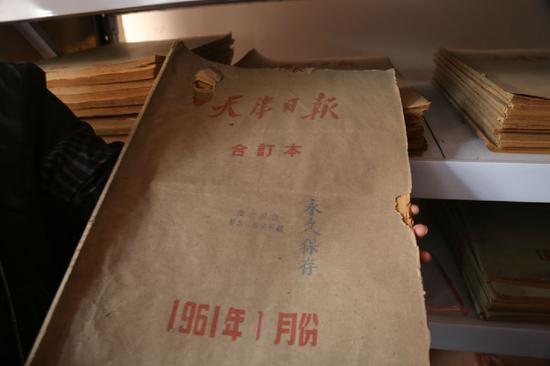 天津日报
合訂本
永久保存
1961年1月份